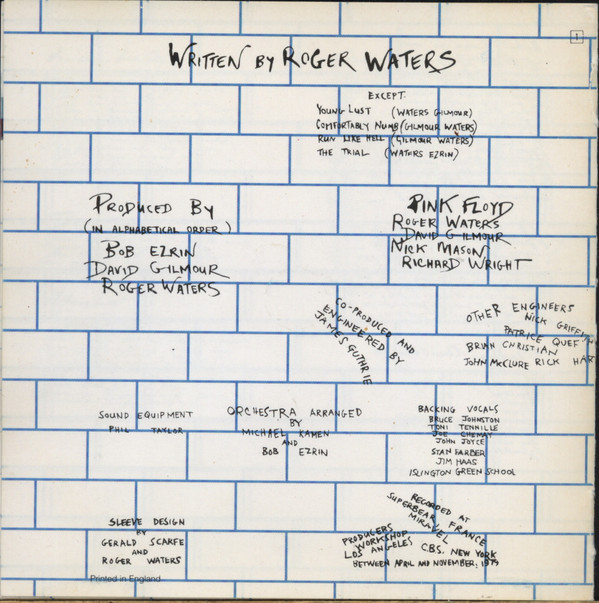 1
WRITTEN BY ROGER WATERS
EXCEPT
YOUNG LUST (WATERS GILMOUR)
COMFORTABLY NUMB (GILMOUR WATERS)
RUN LIKE HELL (GILMOUR WATERS)
THE TRIAL (WATERS EZRIN)
PRODUCED BY
(IN ALPHABETICAL ORDER)
BOB EZRIN
DAVID GILMOUR
ROGER WATERS
PINK FLOYD
ROGER WATERS
DAVID GILMOUR
NICK MASON
RICHARD WRIGHT
CO-PRODUCED AND
ENGINEERED BY
JAMES GUTHRIE
OTHER ENGINEERS
NICK
PATRICE QUEF
CHRISTIAN
JOHN McCLURE RICK
SOUND EQUIPMENT
PHIL TAYLOR
ORCHESTRA ARRANGED
BY
MICHAEL KAMEN
AND
BOB EZRIN
BACKING VOCALS
BRUCE JOHNSTON
TONI TENNILLE
JOE CHEMAY
JOHN JOYCE
STAN FARBER
JIM HAAS
ISLINGTON GREEN SCHOOL
SLEEVE DESIGN
BY
GERALD SCARFE
AND
ROGER WATERS
RECORDED AT
SUPERBEAR FRANCE
MIRAVEL
PRODUCERS
WORKSHOP
LOS ANGELES
CBS. NEW YORK
BETWEEN APRIL AND NOVEMBER, 1979
Printed in England